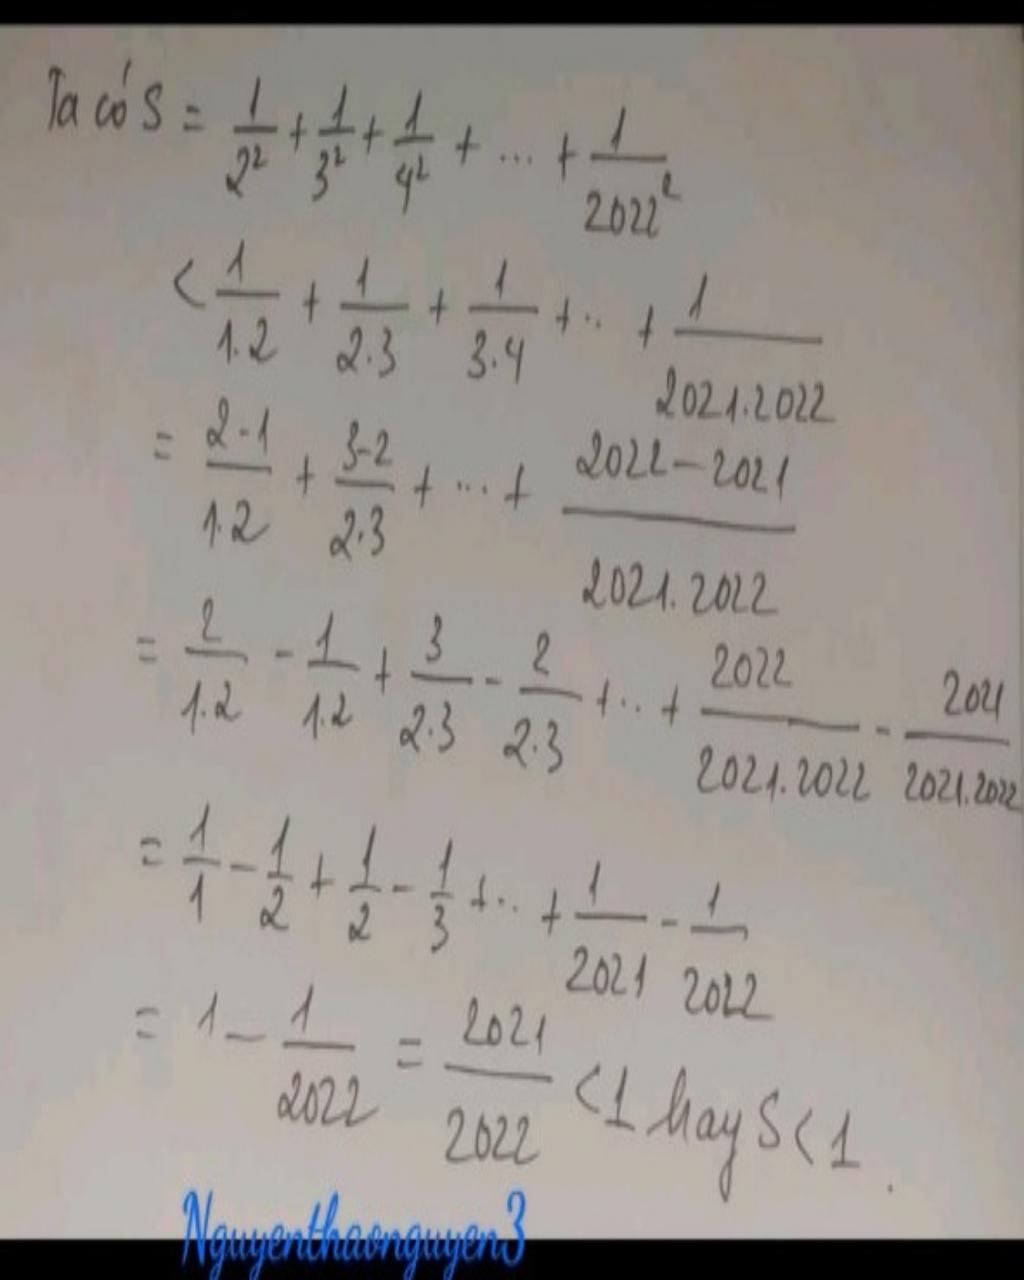 Ta có S = 1/2² + 1/3² + 1/4² + ... + 1/2022²
< 1/1.2 + 1/2.3 + 1/3.4 + .. + 1/2021.2022
= 2-1/1.2 + 3-2/2.3 + ... + 2022-2021/2021.2022
= 2/1.2 - 1/1.2 + 3/2.3 - 2/2.3 + .. + 2022/2021.2022 - 2021/2021.2022
= 1/1 - 1/2 + 1/2 - 1/3 + .. + 1/2021 - 1/2022
= 1 - 1/2022 = 2021/2022 < 1 hay S < 1.
Nguyenthaonguyen3